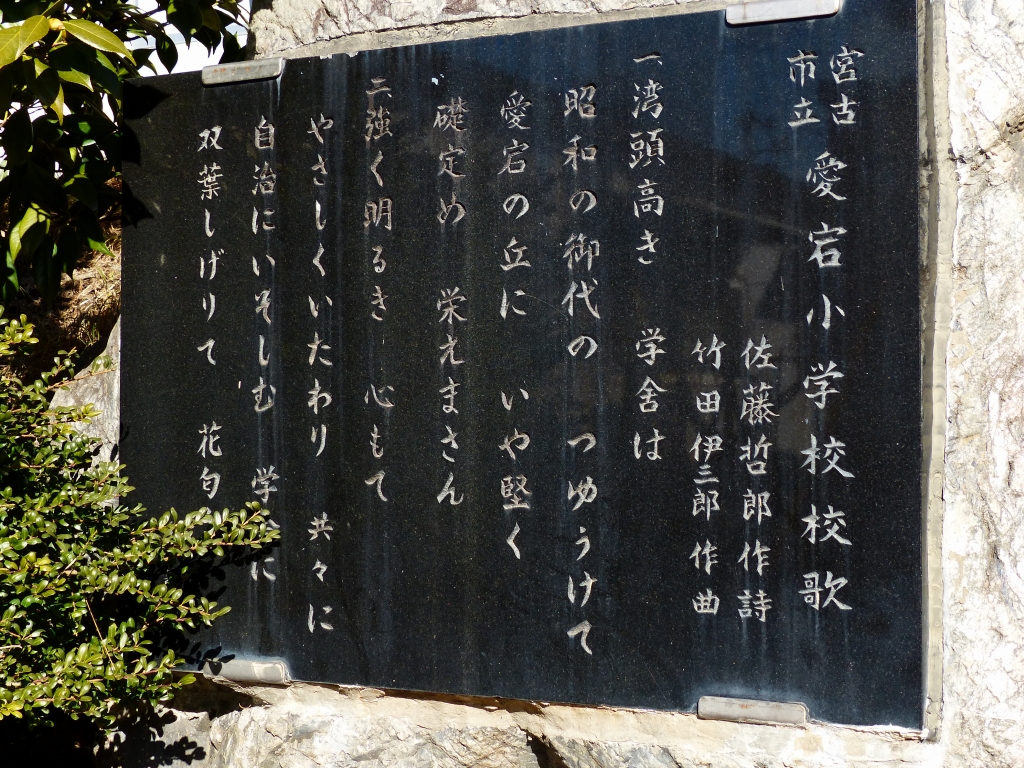 宮古市立 愛宕小学校校歌
佐藤哲郎 作詩
竹田伊三郎 作曲
一 湾頭高き 学舎は
昭和の御代の つゆうけて
愛宕の丘に いや堅く
礎定め 栄えまさん
二 強く明るき 心もて
やさしくいたわり 共々に
自治にいそしむ 学 に
双葉しげりて 花匂